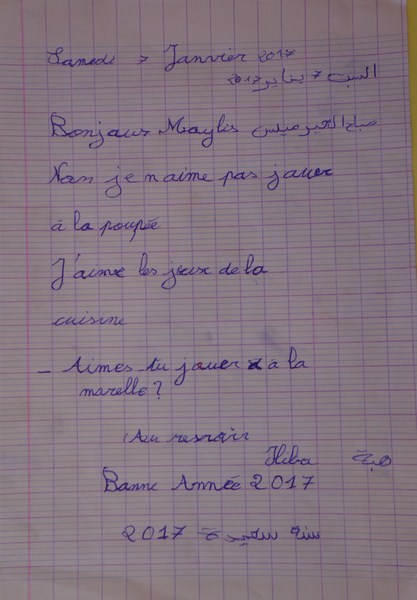 Samedi 7 Janvier 2017
السبت 7 يناير 2017
Bonjour Maylis صباح الخير ميليس
Non je n'aime pas jouer
à la poupée
J'aime les jeux de la
cuisine
- Aimes-tu jouer à la
marelle?
Au revoir
Hiba هبة
Bonne Année 2017
سنة سعيدة 2017